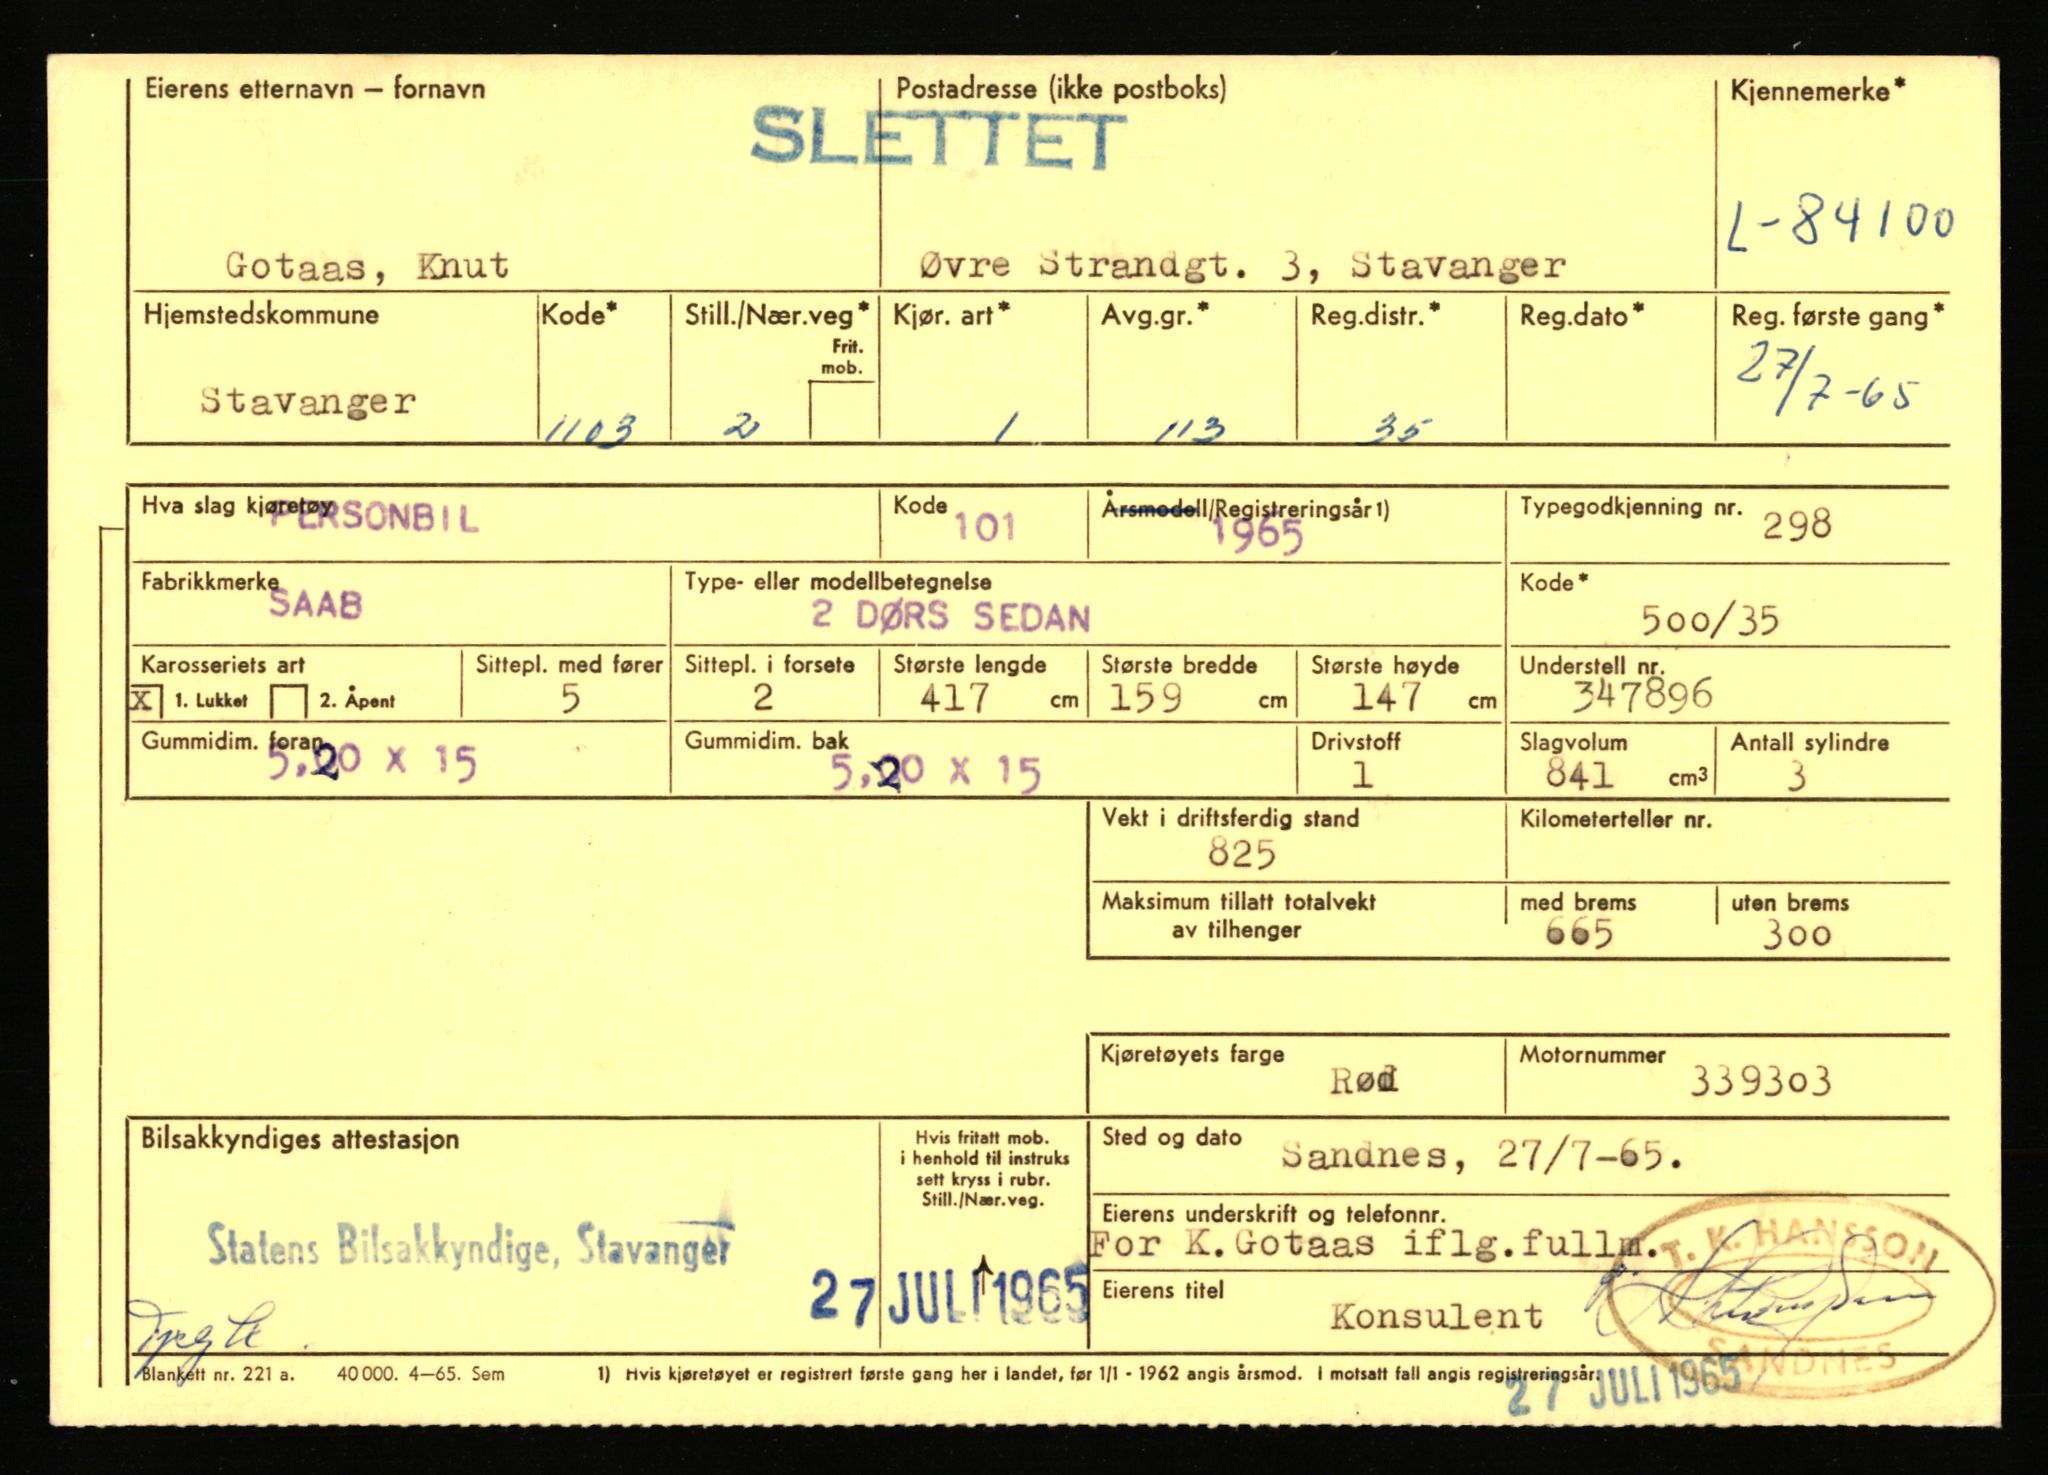 Eierens etternavn – fornavn
Postadresse (ikke postboks)
Kjennemerke*
SLETTET
L-84100
Gotaas, Knut
Øvre Strandgt. 3, Stavanger
Hjemstedskommune
Kode*
Still./Nær.veg*
Kjør. art*
Avg.gr.*
Reg.distr.*
Reg.dato*
Reg. første gang*
Frit.
mob.
27/7-65
Stavanger
1103
2
1
113
35
Hva slag kjøretøy
PERSONBIL
Kode
101
Årsmodell/Registreringsår 1)
1965
Typegodkjenning nr.
298
Fabrikkmerke
SAAB
Type- eller modellbetegnelse
2 DØRS SEDAN
Kode*
500/35
Karosseriets art
X 1. Lukket 2. Åpent
Sittepl. med fører
5
Sittepl. i forsete
2
Største lengde
417 cm
Største bredde
159 cm
Største høyde
147 cm
Understell nr.
347896
Gummidim. foran
5,20 X 15
Gummidim. bak
5,20 X 15
Drivstoff
1
Slagvolum
841 cm3
Antall sylindre
3
Vekt i driftsferdig stand
825
Kilometerteller nr.
Maksimum tillatt totalvekt
av tilhenger
med brems
665
uten brems
300
Kjøretøyets farge
Rød
Motornummer
339303
Bilsakkyndiges attestasjon
Hvis fritatt mob.
i henhold til instruks
sett kryss i rubr.
Still./Nær.veg.
Sted og dato
Sandnes, 27/7-65.
Statens Bilsakkyndige, Stavanger
27 JULI 1965
Eierens underskrift og telefonnr.
For K.Gotaas iflg.fullm.
Eierens titel
Konsulent
T. K. HANSSON
SANDNES
27 JULI 1965
Blankett nr. 221 a. 40 000. 4–65. Sem
1) Hvis kjøretøyet er registrert første gang her i landet, før 1/1 - 1962 angis årsmod. I motsatt fall angis registreringsår.